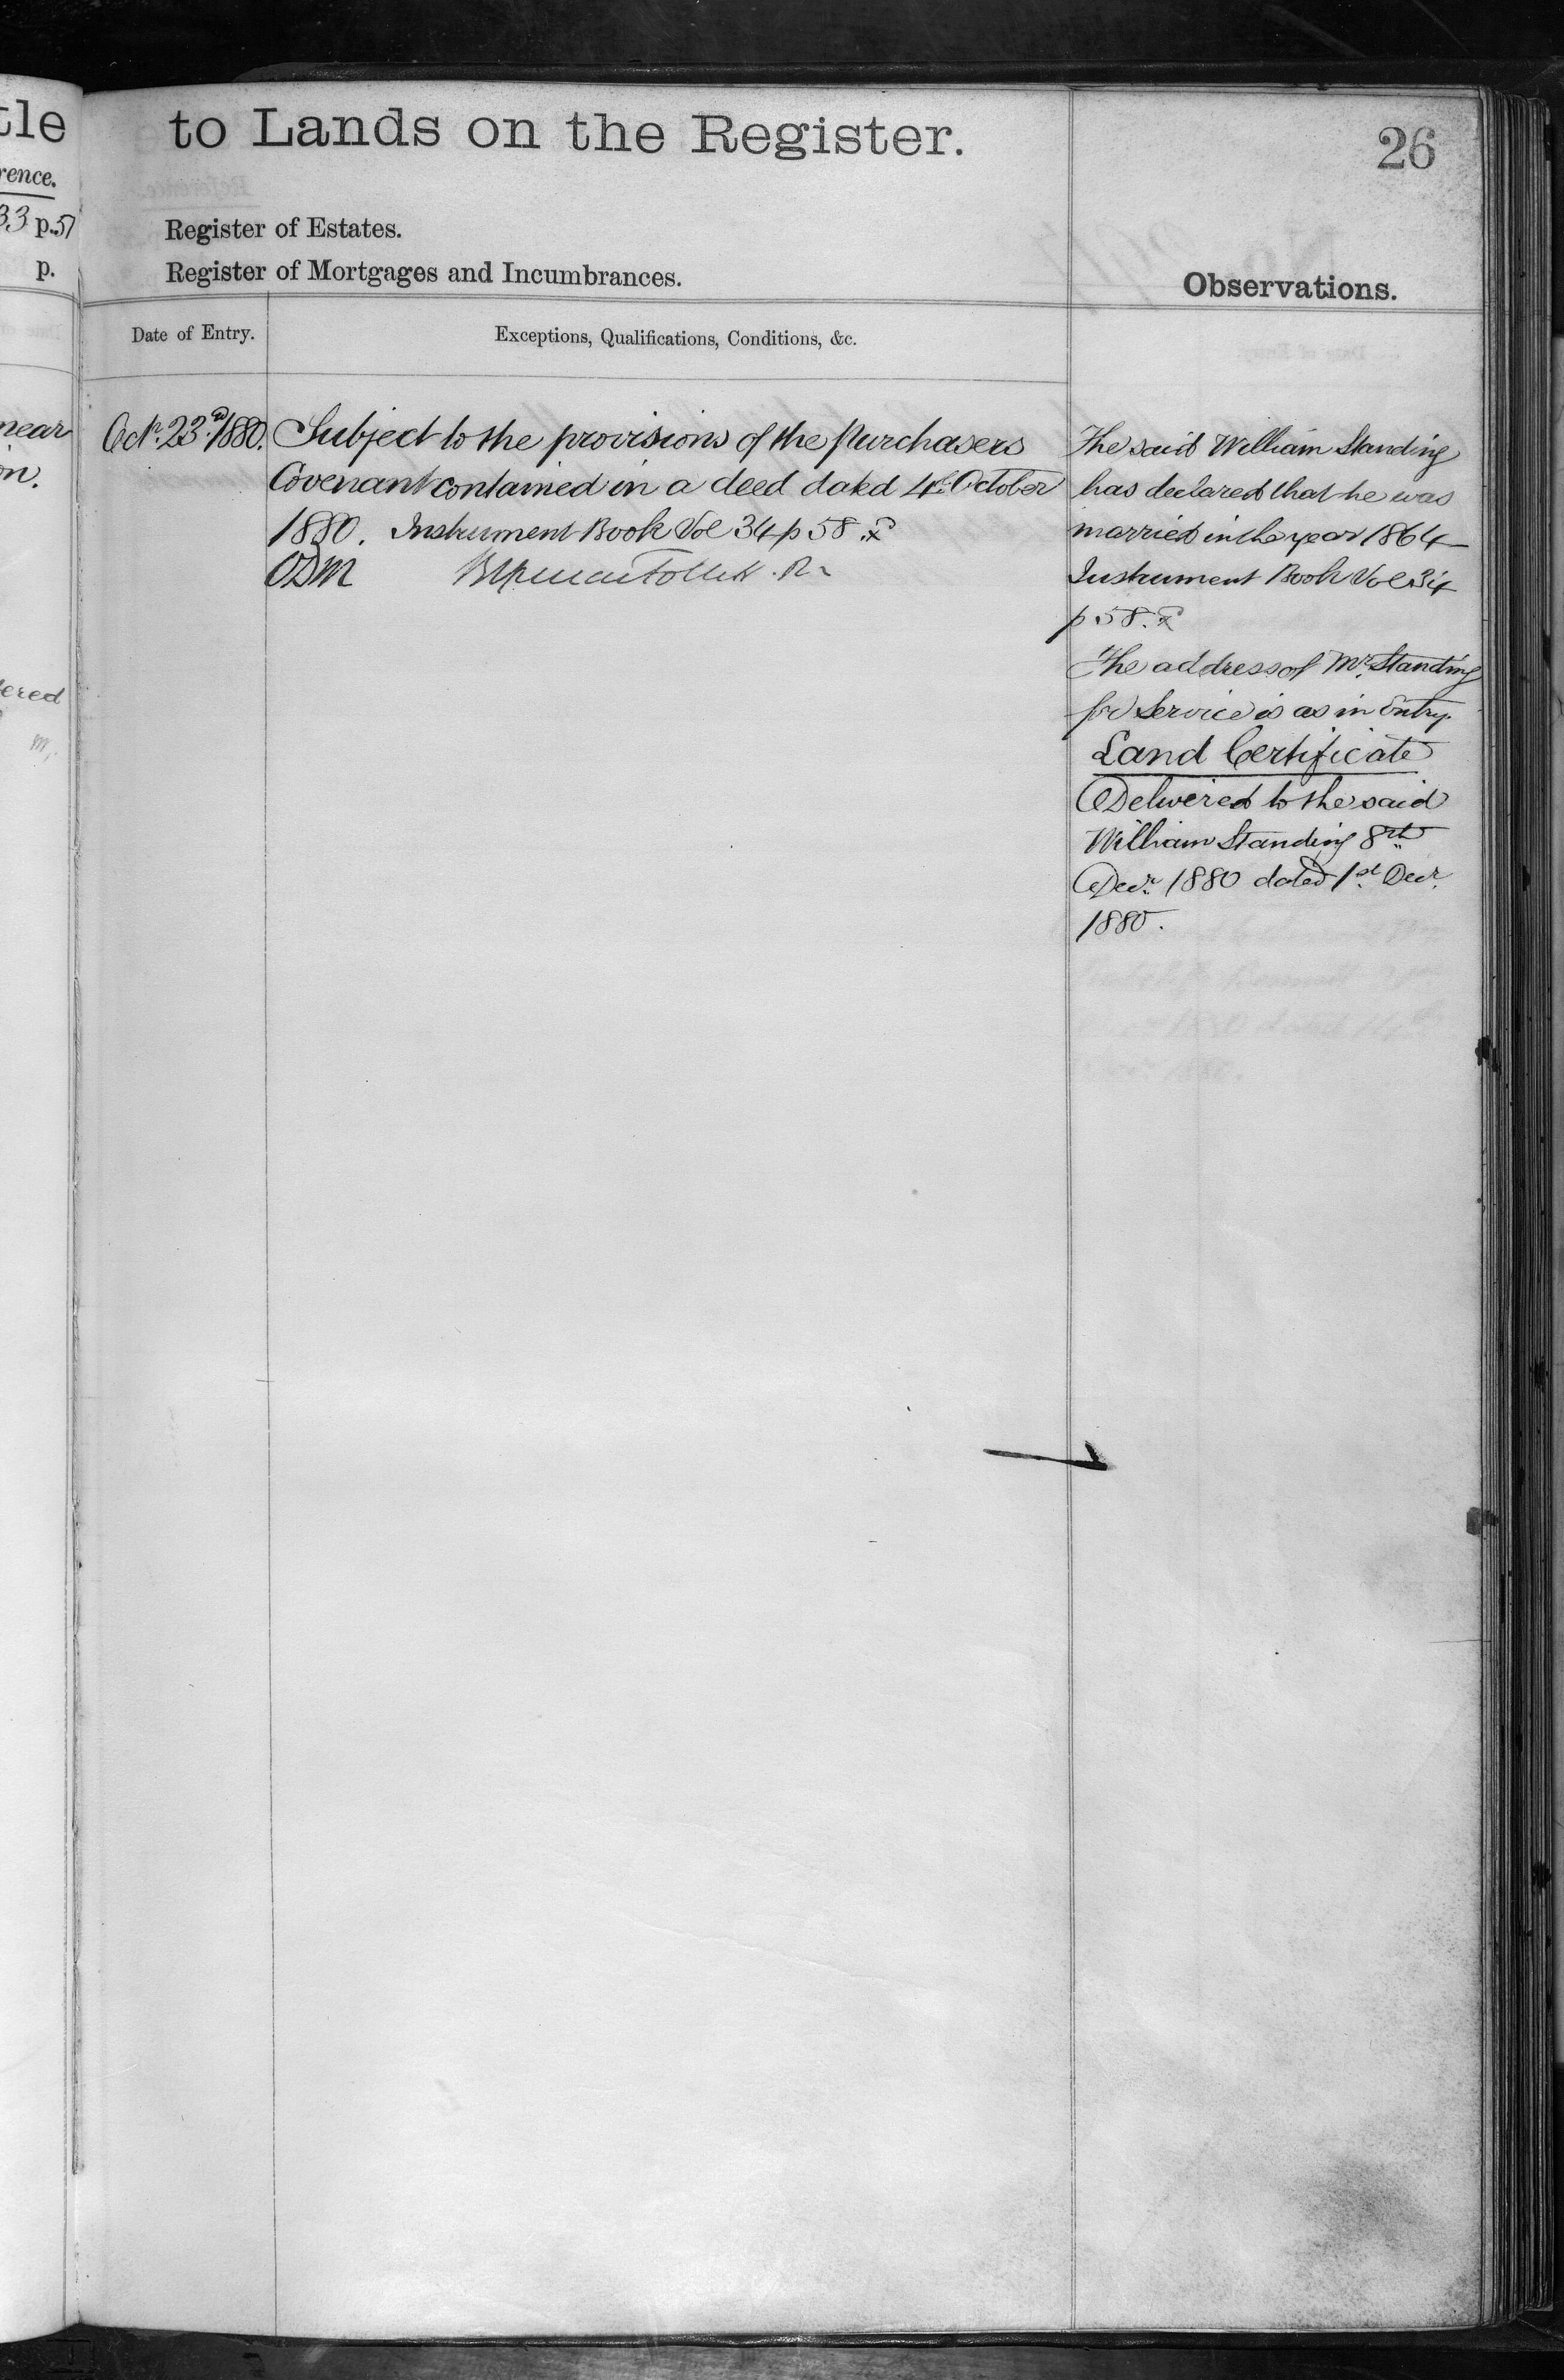 tle
rence.
33 p.57
p.
near
on.
ered
to Lands on the Register.
26
Register of Estates.
Register of Mortgages and Incumbrances.
Observations.
Date of Entry.
Exceptions, Qualifications, Conditions, &c.
Octr. 23rd 1880.
Subject to the provisions of the Purchasers
Covenant contained in a deed dated 4th October
1880. Instrument Book Vol 34 p 58.
ODM
The said William Standing
has declared that he was
married in the year 1864
Instrument Book Vol 34
p 58.
The address of Mr. Standing
for Service is as in Entry.
Land Certificate
Delivered to the said
William Standing 8th
Decr. 1880 dated 1st Decr.
1880.